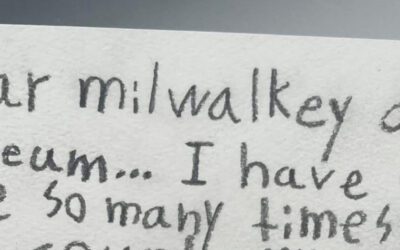 ar milwalkey
eum... I have
so many times